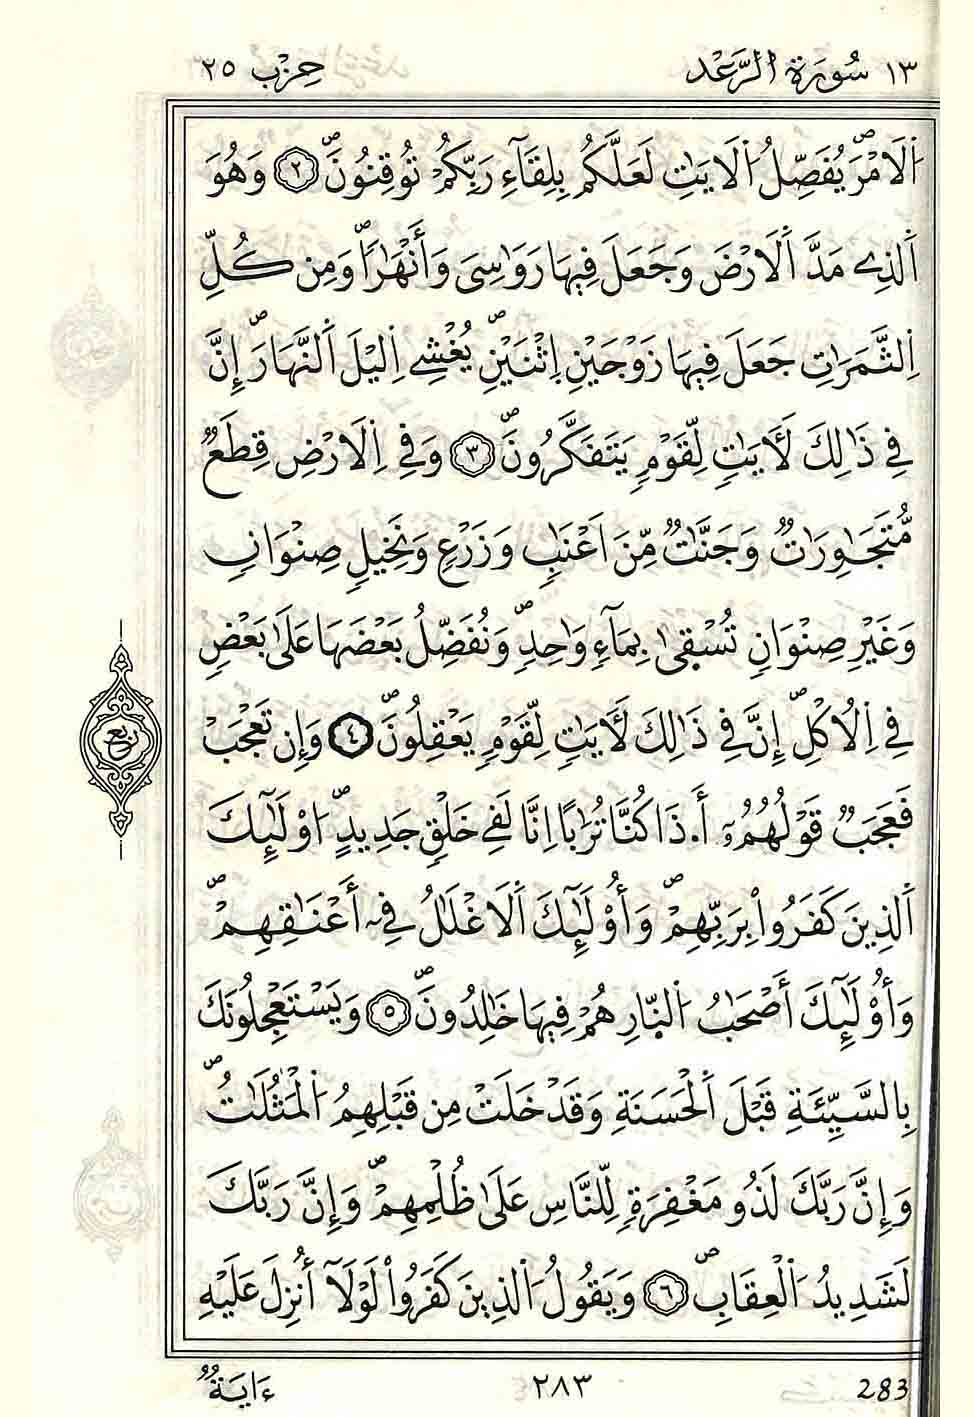 ١٣ سُورَةُ الرَّعْدِ حِزْب ٢٥
اَ۬لَامْرَۖ يُفَصِّلُ اُ۬لَايَٰتِ لَعَلَّكُم بِلِقَآءِ رَبِّكُمْ تُوقِنُونَۖ ٢ وَهُوَ
اَ۬لذِے مَدَّ اَ۬لَارْضَ وَجَعَلَ فِيهَا رَوَٰسِيَ وَأَنْهَٰراٗۖ وَمِن كُلِّ
اِ۬لثَّمَرَٰتِ جَعَلَ فِيهَا زَوْجَيْنِ اِ۪ثْنَيْنِۖ يُغْشِے اِ۬ليْلَ اَ۬لنَّهَارَۖ إِنَّ
فِے ذَٰلِكَ لَأٓيَٰتٖ لِّقَوْمٖ يَتَفَكَّرُونَۖ ٣ وَفِے اِ۬لَارْضِ قِطَعٞ
مُّتَجَٰوِرَٰتٞ وَجَنَّٰتٞ مِّنَ اَعْنَٰبٖ وَزَرْعٖ وَنَخِيلٖ صِنْوَانٖ
وَغَيْرِ صِنْوَانٖ تُسْقَىٰ بِمَآءٖ وَٰحِدٖۖ وَنُفَضِّلُ بَعْضَهَا عَلَىٰ بَعْضٖ
فِے اِ۬لُاكْلِۖ إِنَّ فِے ذَٰلِكَ لَأٓيَٰتٖ لِّقَوْمٖ يَعْقِلُونَۖ ٤ وَإِن تَعْجَبْ
فَعَجَبٞ قَوْلُهُمُۥٓ أَ۟ذَا كُنَّا تُرَٰباًۖ اِنَّا لَفِے خَلْقٖ جَدِيدٍۖ ا۟وْلَٰٓئِكَ
اَ۬لذِينَ كَفَرُواْ بِرَبِّهِمْۖ وَأُوْلَٰٓئِكَ اَ۬لَاغْلَٰلُ فِےٓ أَعْنَٰقِهِمْۖ
وَأُوْلَٰٓئِكَ أَصْحَٰبُ اُ۬لنّ۪ارِ هُمْ فِيهَا خَٰلِدُونَۖ ٥ وَيَسْتَعْجِلُونَكَ
بِالسَّيِّئَةِ قَبْلَ اَ۬لْحَسَنَةِ وَقَدْ خَلَتْ مِن قَبْلِهِمُ اُ۬لْمَثُلَٰتُۖ
وَإِنَّ رَبَّكَ لَذُو مَغْفِرَةٖ لِّلنَّاسِ عَلَىٰ ظُلْمِهِمْۖ وَإِنَّ رَبَّكَ
لَشَدِيدُ اُ۬لْعِقَابِۖ ٦ وَيَقُولُ اُ۬لذِينَ كَفَرُواْ لَوْلَآ أُنزِلَ عَلَيْهِ
ربع
ءَايَةٞ ٢٨٣ 283